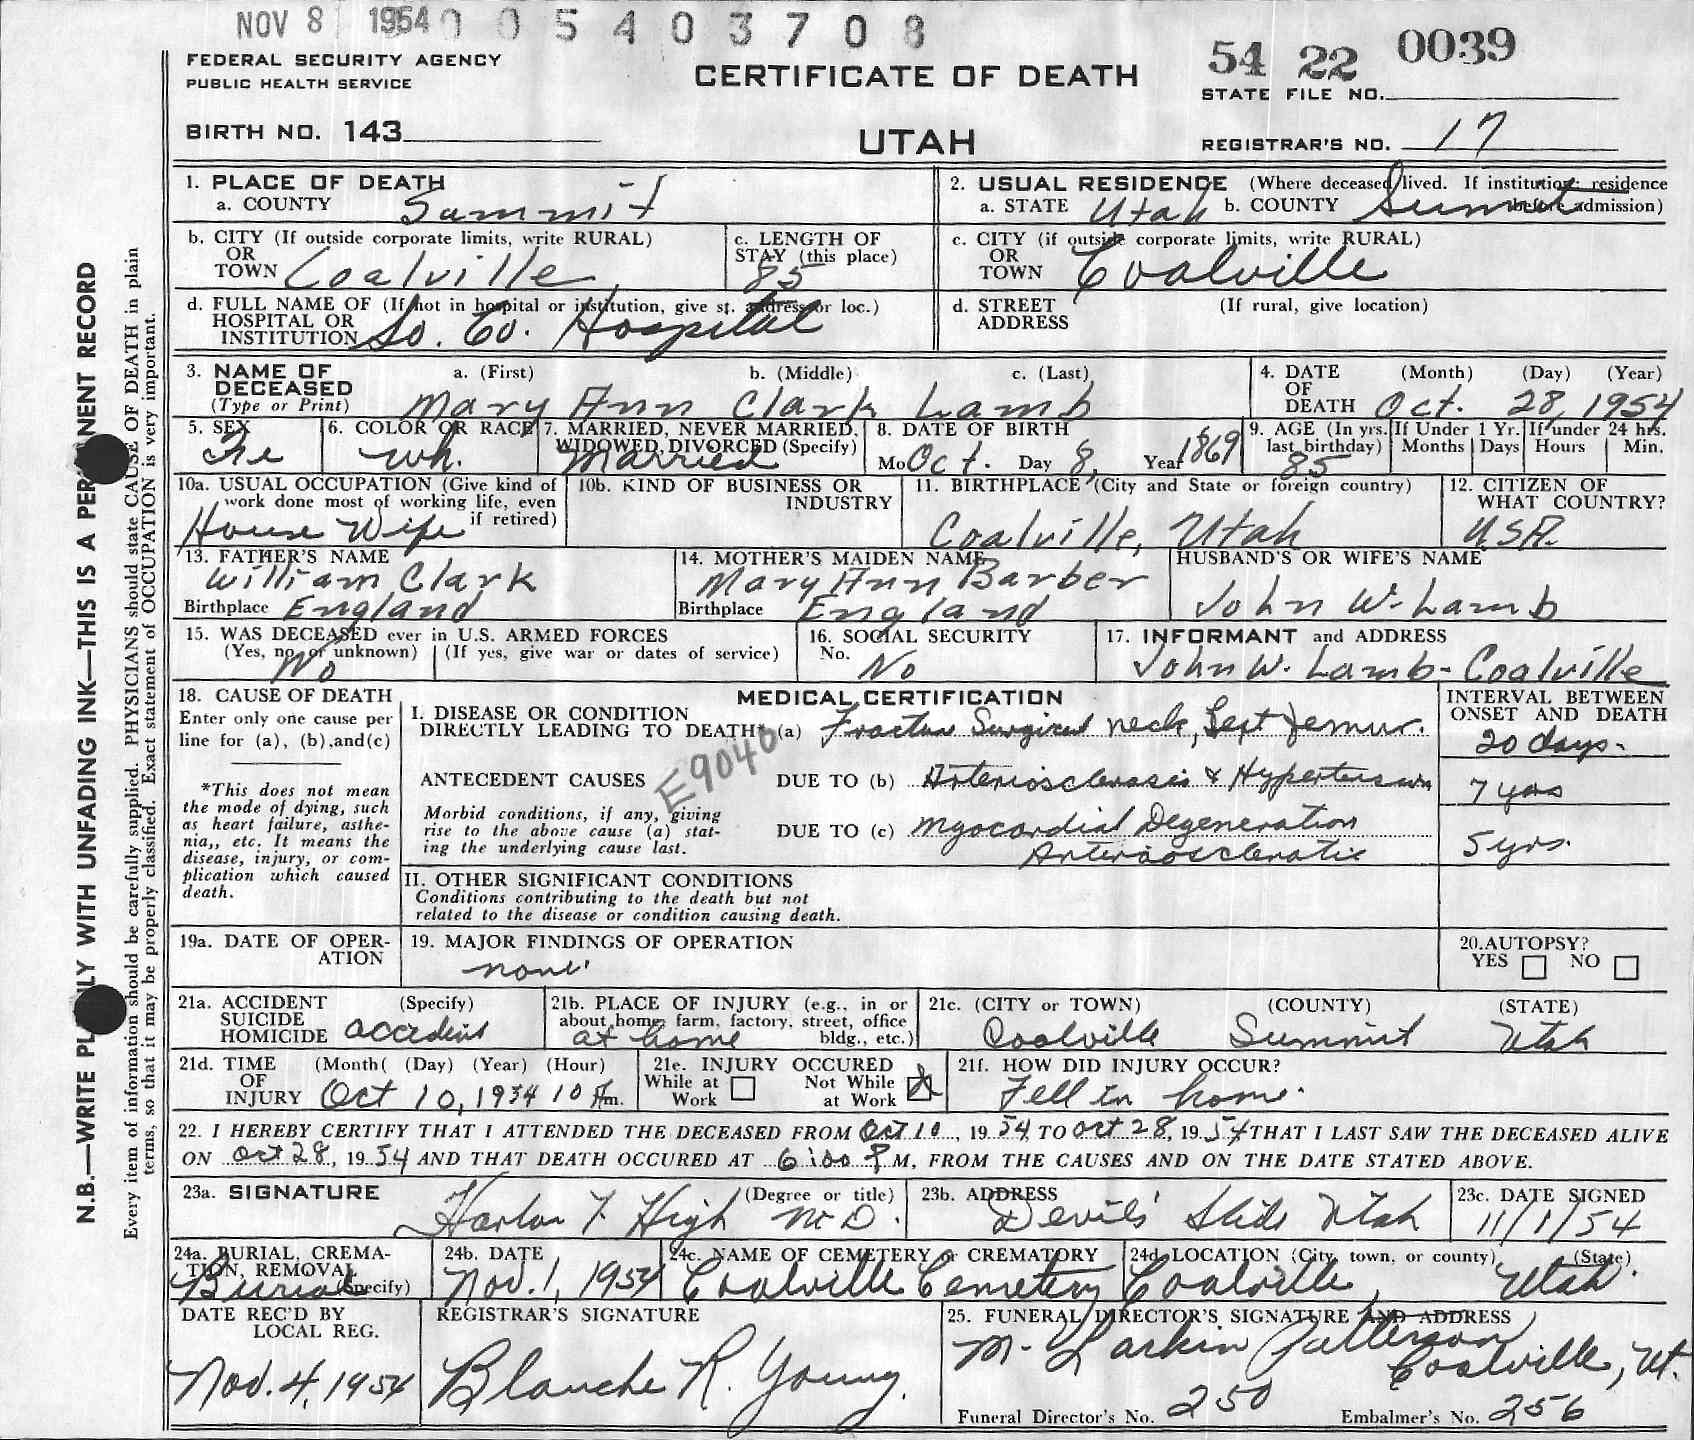 NOV 8 1954 0 0 5 4 0 3 7 0 8
FEDERAL SECURITY AGENCY
PUBLIC HEALTH SERVICE
CERTIFICATE OF DEATH
54 22 0039
STATE FILE NO.
BIRTH NO. 143
UTAH
REGISTRAR'S NO. 17
N.B.—WRITE PLAINLY WITH UNFADING INK—THIS IS A PERMANENT RECORD
Every item of information should be carefully supplied. PHYSICIANS should state CAUSE OF DEATH in plain
terms, so that it may be properly classified. Exact statement of OCCUPATION is very important.
1. PLACE OF DEATH
a. COUNTY Summit
2. USUAL RESIDENCE (Where deceased lived. If institution: residence before admission)
a. STATE Utah b. COUNTY Summit
b. CITY (If outside corporate limits, write RURAL)
OR
TOWN Coalville
c. LENGTH OF
STAY (this place)
85
c. CITY (if outside corporate limits, write RURAL)
OR
TOWN Coalville
d. FULL NAME OF (If not in hospital or institution, give st. address or loc.)
HOSPITAL OR
INSTITUTION So. Co. Hospital
d. STREET (If rural, give location)
ADDRESS
3. NAME OF a. (First) b. (Middle) c. (Last)
DECEASED
(Type or Print) Mary Ann Clark Lamb
4. DATE (Month) (Day) (Year)
OF
DEATH Oct. 28, 1954
5. SEX
Fe
6. COLOR OR RACE
Wh.
7. MARRIED, NEVER MARRIED,
WIDOWED, DIVORCED (Specify)
Married
8. DATE OF BIRTH
Mo Oct. Day 8, Year 1869
9. AGE (In yrs.
last birthday)
85
If Under 1 Yr.
Months Days
If under 24 hrs.
Hours Min.
10a. USUAL OCCUPATION (Give kind of
work done most of working life, even
if retired)
House Wife
10b. KIND OF BUSINESS OR
INDUSTRY
11. BIRTHPLACE (City and State or foreign country)
Coalville, Utah
12. CITIZEN OF
WHAT COUNTRY?
USA.
13. FATHER'S NAME
William Clark
Birthplace England
14. MOTHER'S MAIDEN NAME
Mary Ann Barber
Birthplace England
HUSBAND'S OR WIFE'S NAME
John W. Lamb
15. WAS DECEASED ever in U.S. ARMED FORCES
(Yes, no, or unknown) (If yes, give war or dates of service)
No
16. SOCIAL SECURITY
No. No
17. INFORMANT and ADDRESS
John W. Lamb - Coalville
18. CAUSE OF DEATH
Enter only one cause per
line for (a), (b), and (c)
*This does not mean
the mode of dying, such
as heart failure, asthe-
nia,, etc. It means the
disease, injury, or com-
plication which caused
death.
MEDICAL CERTIFICATION
I. DISEASE OR CONDITION
DIRECTLY LEADING TO DEATH* (a) Fracture Surgical neck, Left femur.
E9040
ANTECEDENT CAUSES DUE TO (b) Arteriosclerosis & Hypertension
Morbid conditions, if any, giving
rise to the above cause (a) stat-
ing the underlying cause last.
DUE TO (c) Myocardial Degeneration
Arteriosclerotic
INTERVAL BETWEEN
ONSET AND DEATH
20 days.
7 yrs
5 yrs.
II. OTHER SIGNIFICANT CONDITIONS
Conditions contributing to the death but not
related to the disease or condition causing death.
19a. DATE OF OPER-
ATION
19. MAJOR FINDINGS OF OPERATION
none
20. AUTOPSY?
YES NO
21a. ACCIDENT (Specify)
SUICIDE
HOMICIDE accident
21b. PLACE OF INJURY (e.g., in or
about home, farm, factory, street, office
bldg., etc.)
at home
21c. (CITY or TOWN) (COUNTY) (STATE)
Coalville Summit Utah
21d. TIME (Month) (Day) (Year) (Hour)
OF
INJURY Oct 10, 1954 10 Am.
21e. INJURY OCCURED
While at Work Not While at Work X
21f. HOW DID INJURY OCCUR?
Fell in home.
22. I HEREBY CERTIFY THAT I ATTENDED THE DECEASED FROM Oct 10, 1954 TO Oct 28, 1954 THAT I LAST SAW THE DECEASED ALIVE
ON Oct 28, 1954 AND THAT DEATH OCCURED AT 6:00 P M, FROM THE CAUSES AND ON THE DATE STATED ABOVE.
23a. SIGNATURE (Degree or title)
Harlow F. High M.D.
23b. ADDRESS
Devils' Slide Utah
23c. DATE SIGNED
11/1/54
24a. BURIAL, CREMA-
TION, REMOVAL
(Specify)
Burial
24b. DATE
Nov. 1, 1954
24c. NAME OF CEMETERY or CREMATORY
Coalville Cemetery
24d. LOCATION (City, town, or county) (State)
Coalville, Utah.
DATE REC'D BY
LOCAL REG.
Nov. 4, 1954
REGISTRAR'S SIGNATURE
Blanche R. Young.
25. FUNERAL DIRECTOR'S SIGNATURE AND ADDRESS
M. Larkin Patterson
Coalville, Ut.
Funeral Director's No. 250 Embalmer's No. 256